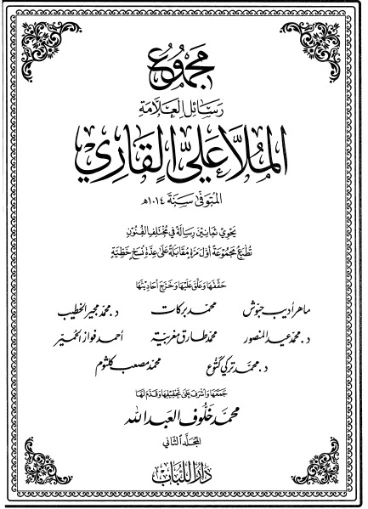 مجموع
رسائل العلامة
الملا علي القاري
المتوفى سنة ١٠١٤ه
يحوي ثمانين رسالة في مختلف الفنون
تطبع مجموعة أول مرة مقابلة على عدة نسخ خطية
حققها وعلق عليها وخرج أحاديثها
ماهر أديب حبوش محمد بركات د. محمد مجير الخطيب
د. محمد عيد المنصور محمد طارق مغربية أحمد فواز الحمير
د. محمد تركي كتوع محمد مصعب كلثوم
جمعها وأشرف على تحقيقها وقدم لها
محمد خلوف العبد الله
المجلد الثاني
دار اللباب